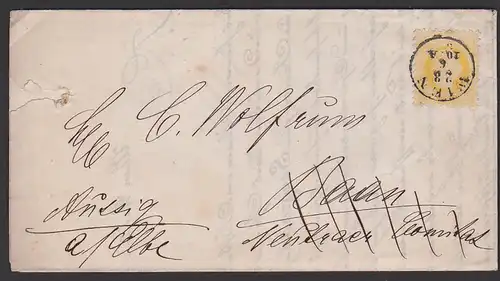 WIEN
23
6
10. A
C. Wolfrum
Baan
Neutraer Comitat
Aussig
a/Elbe